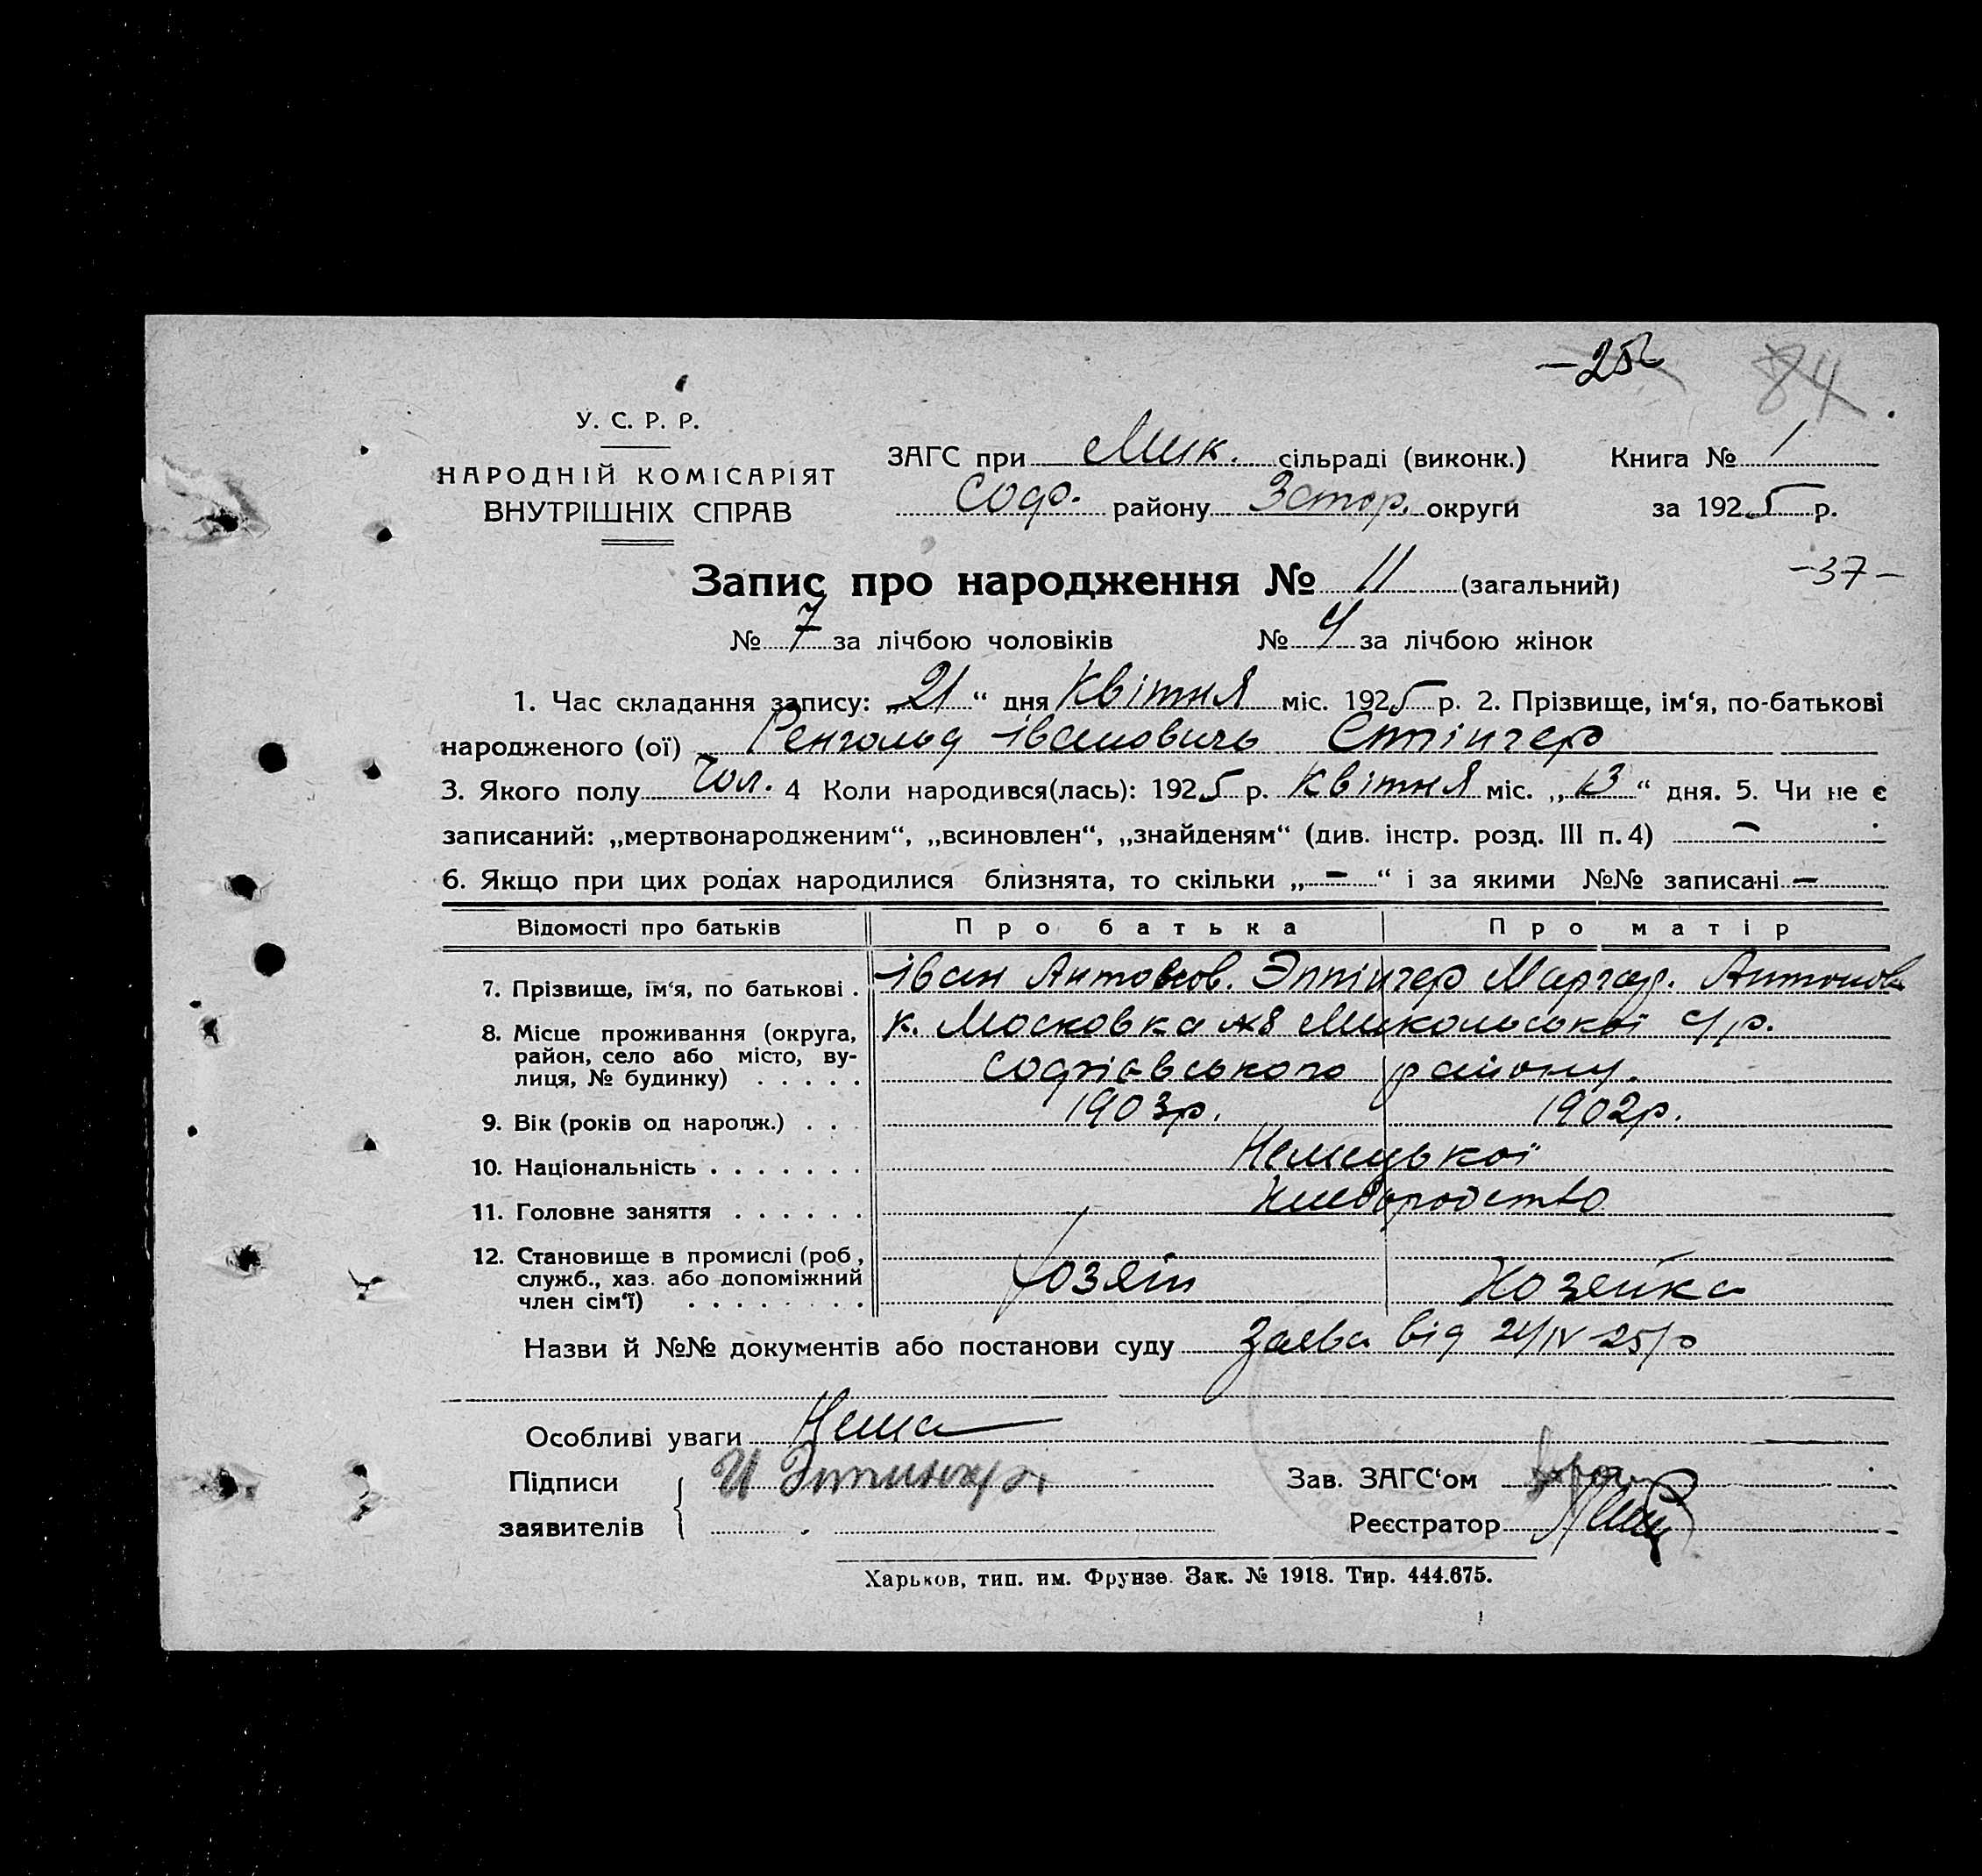 -25
84
У. С. Р. Р.
НАРОДНІЙ КОМІСАРІЯТ
ВНУТРІШНІХ СПРАВ
ЗАГС при Мик. сільраді (виконк.) Книга № 1
Соф. району Запор. округи за 1925 р.
Запис про народження № 11 (загальний)
-37-
№ 7 за лічбою чоловіків № 4 за лічбою жінок
1. Час складання запису: „21“ дня Квітня міс. 1925 р. 2. Прізвище, ім‘я, по-батькові
народженого (ої) Ренгольд Івановичь Еттінгер
3. Якого полу Чол. 4 Коли народився(лась): 1925 р. Квітня міс. „13“ дня. 5. Чи не є
записаний: „мертвонародженим“, „всиновлен“, „знайденям“ (див. інстр. розд. III п. 4) —
6. Якщо при цих родах народилися близнята, то скільки „—“ і за якими №№ записані —
Відомості про батьків Про батька Про матір
7. Прізвище, ім‘я, по батькові . Іван Антонов. Эттінгер Маргар. Антонов
8. Місце проживання (округа, к. Московка №8 Микольської с/р.
район, село або місто, ву-
лиця, № будинку) . . . . . Софіевського району.
9. Вік (років од народж.) . . . 1903р. 1902р.
10. Національність . . . . . . . Немецької
11. Головне заняття . . . . . . Хлеборобство
12. Становище в промислі (роб,
служб., хаз. або допоміжний Хозяін Хозяйка
член сім‘ї) . . . . . . . .
Назви й №№ документів або постанови суду Заява від 21/IV-25/р
Особливі уваги Нема
Підписи И Эттингер Зав. ЗАГС‘ом
заявителів Реєстратор
Харьков, тип. им. Фрунзе. Зак. № 1918. Тир. 444.675.